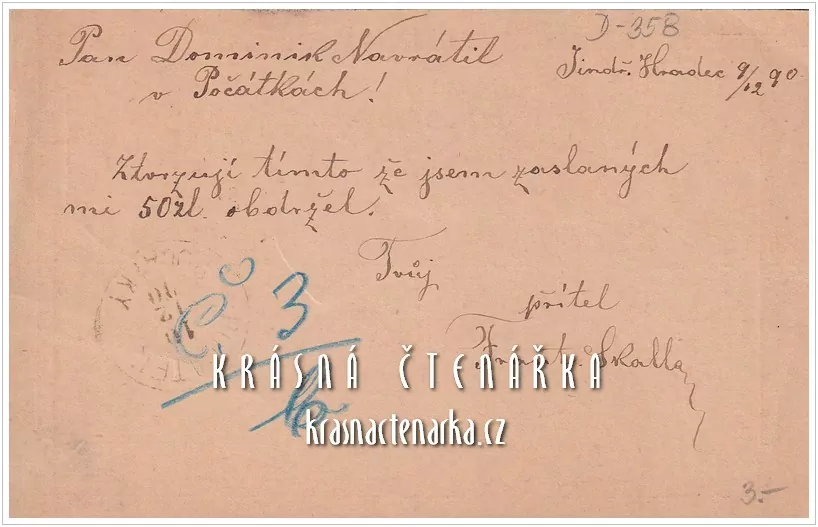 D-358
Pan Dominik Navrátil
Jindř. Hradec 9/12 90
v Počátkách!
Ztvrzuji tímto že jsem zaslaných
mi 50zl. obdržel.
Tvůj
přítel
Frant. Skalla
Co 3
KRÁSNÁ ČTENÁŘKA
krasnactenarka.cz
3.-